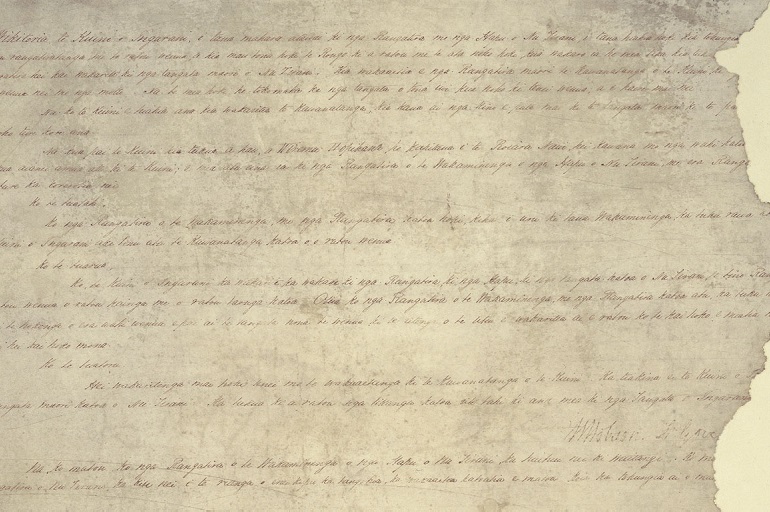 Wikitoria te Kuini o Ingarani, i tana mahara atawai ki nga Rangatira me nga Hapu o Nu Tirani i tana hiahia hoki kia tohungia
rangatiratanga me to ratou wenua, a kia mau tonu hoki te Rongo ki a ratou me te Ata noho hoki kua wakaaro ia he mea tika kia tukua
hei kai wakarite ki nga tangata maori o Nu Tirani. Kia wakaaetia e nga Rangatira maori te Kawanatanga o te Kuini ki
wenua nei me nga motu. Na te mea hoki he tokomaha ke nga tangata o tona Iwi kua noho ki tenei wenua, a e haere mai nei
Na ko te Kuini e hiahia ana kia wakaritea te Kawanatanga, kia kaua ai nga kino e puta mai ki te tangata maori ki te
ture kore ana
Na kua pai te Kuini kia tukua a hau, a Wiremu Hopihona he Kapitana i te Roiara Nawi hei Kawana mo nga wahi katoa
aianei amua atu ki te Kuini; e mea atu ana ia ki nga Rangatira o te Wakaminenga o nga Hapu o Nu Tirani, me era
ture ka korerotia nei
Ko te tuatahi,
Ko nga Rangatira o te Wakaminenga, me nga Rangatira katoa hoki, kihai i uru ki taua Wakaminenga, ka tuku rawa
o Ingarani ake tonu atu te Kawanatanga katoa o o ratou wenua
Ko te tuarua
Ko te Kuini o Ingarani ka wakarite ka wakaae ki nga Rangatira, ki nga Hapu, ki nga tangata katoa o Nu Tirani, te tino
wenua o ratou kainga me o ratou taonga katoa. Otiia ko nga Rangatira o te Wakaminenga, me nga Rangatira katoa atu, ka tuku
te hokonga o era wahi wenua e pai ai te tangata nona te wenua ki te ritenga o te utu e wakaritea ai e ratou ko te kai hoko e meatia
hei kai hoko mona.
Ko te tuatoru
Hei wakaritenga mai hoki tenei mo te wakaaetanga ki te Kawanatanga o te Kuini. Ka tiakina e te Kuini o
tangata maori katoa o Nu Tirani. Ka tukua ki a ratou nga tikanga katoa rite tahi ki ana mea ki nga tangata o Ingarani
W Hobson
Na ko matou ko nga Rangatira o te Wakaminenga o nga Hapu o Nu Tirani, ka huihui nei ki Waitangi
o Nu Tirani, ka kite nei i te ritenga o enei kupu ka tangohia, ka wakaaetia katoatia e matou